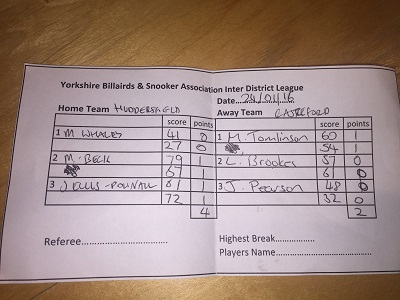 Yorkshire Billairds & Snooker Association Inter District League
Date 24/01/16
Home Team HUDDERSFIELD Away Team CASTLEFORD
score points score points
1 M WHALES 41 0 1 M. Tomlinson 60 1
27 0 54 1
2 M. BECK 79 1 2 L. Brookes 57 0
67 1 6 0
3 J ELLIS-POWNALL 81 1 3 J. Pearson 48 0
72 1 32 0
4 2
Referee.................................
Highest Break.................
Players Name.........................................